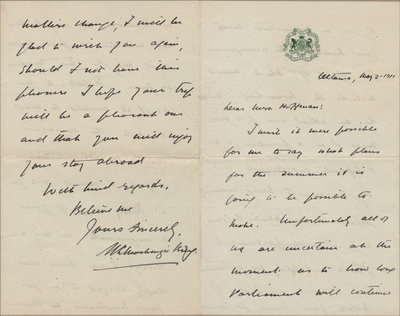 Ottawa, May 2- 1911
Dear Mrs Hoffman:
I wish it were possible
for me to say what plans
for the summer it is
going to be possible to
make. Unfortunately all of
us are uncertain at the
moment as to how long
Parliament will continue
matters change, I will be
glad to write you again,
should I not have this
pleasure I hope your trip
will be a pleasant one
and that you will enjoy
your stay abroad
With kind regards,
Believe me
Yours sincerely,
W L Mackenzie King